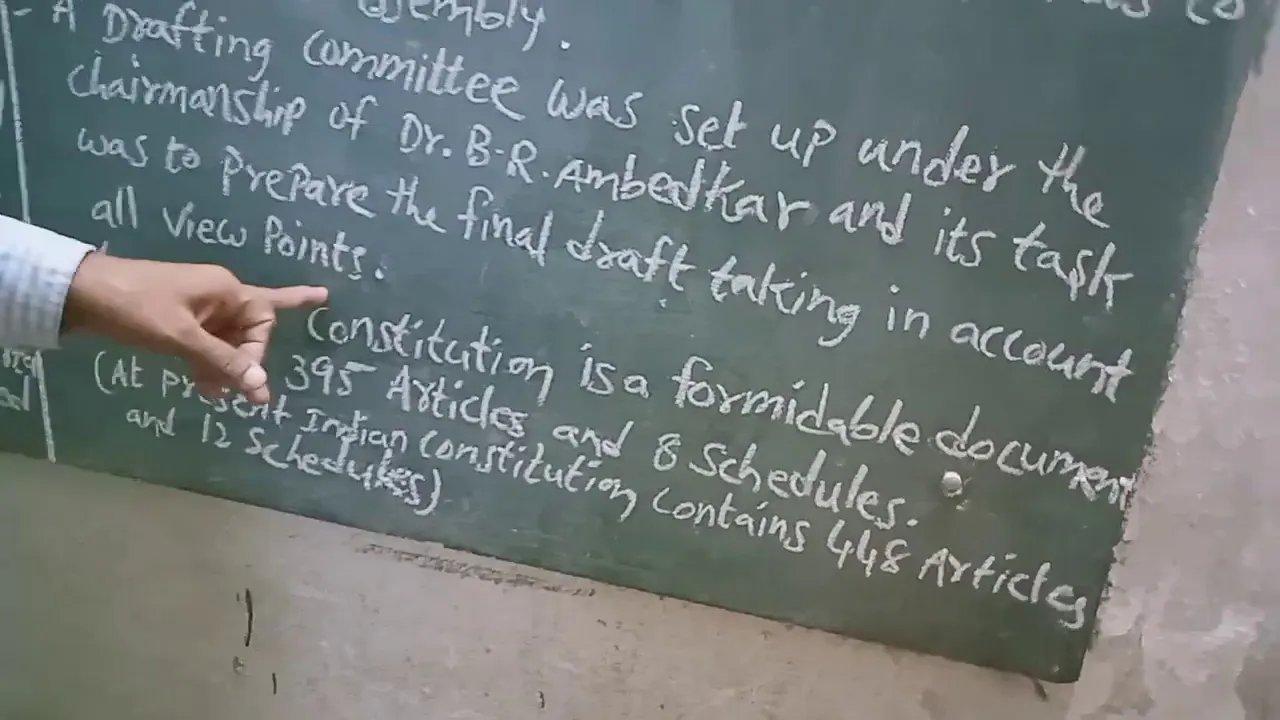 ssembly.
- A Drafting committee was set up under the
chairmanship of Dr. B-R. Ambedkar and its task
was to Prepare the final draft taking in account
all View Points.
Constitution is a formidable document
395 Articles and 8 Schedules.
(At present Indian constitution contains 448 Articles
and 12 Schedules)